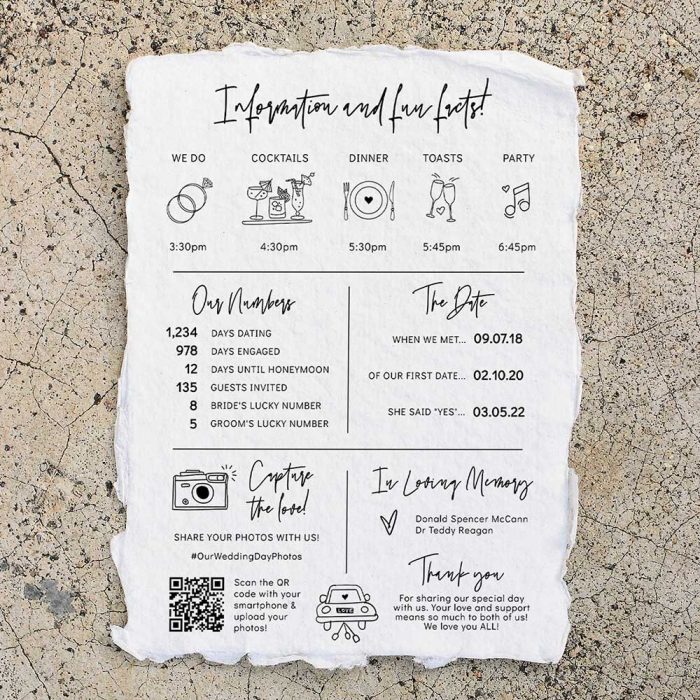 Information and fun facts!
WE DO COCKTAILS DINNER TOASTS PARTY
3:30pm 4:30pm 5:30pm 5:45pm 6:45pm
Our Numbers
1,234 DAYS DATING
978 DAYS ENGAGED
12 DAYS UNTIL HONEYMOON
135 GUESTS INVITED
8 BRIDE'S LUCKY NUMBER
5 GROOM'S LUCKY NUMBER
The Date
WHEN WE MET... 09.07.18
OF OUR FIRST DATE... 02.10.20
SHE SAID "YES"... 03.05.22
Capture
the love!
SHARE YOUR PHOTOS WITH US!
#OurWeddingDayPhotos
Scan the QR
code with your
smartphone &
upload your
photos!
In Loving Memory
Donald Spencer McCann
Dr Teddy Reagan
LOVE
Thank you
For sharing our special day
with us. Your love and support
means so much to both of us!
We love you ALL!